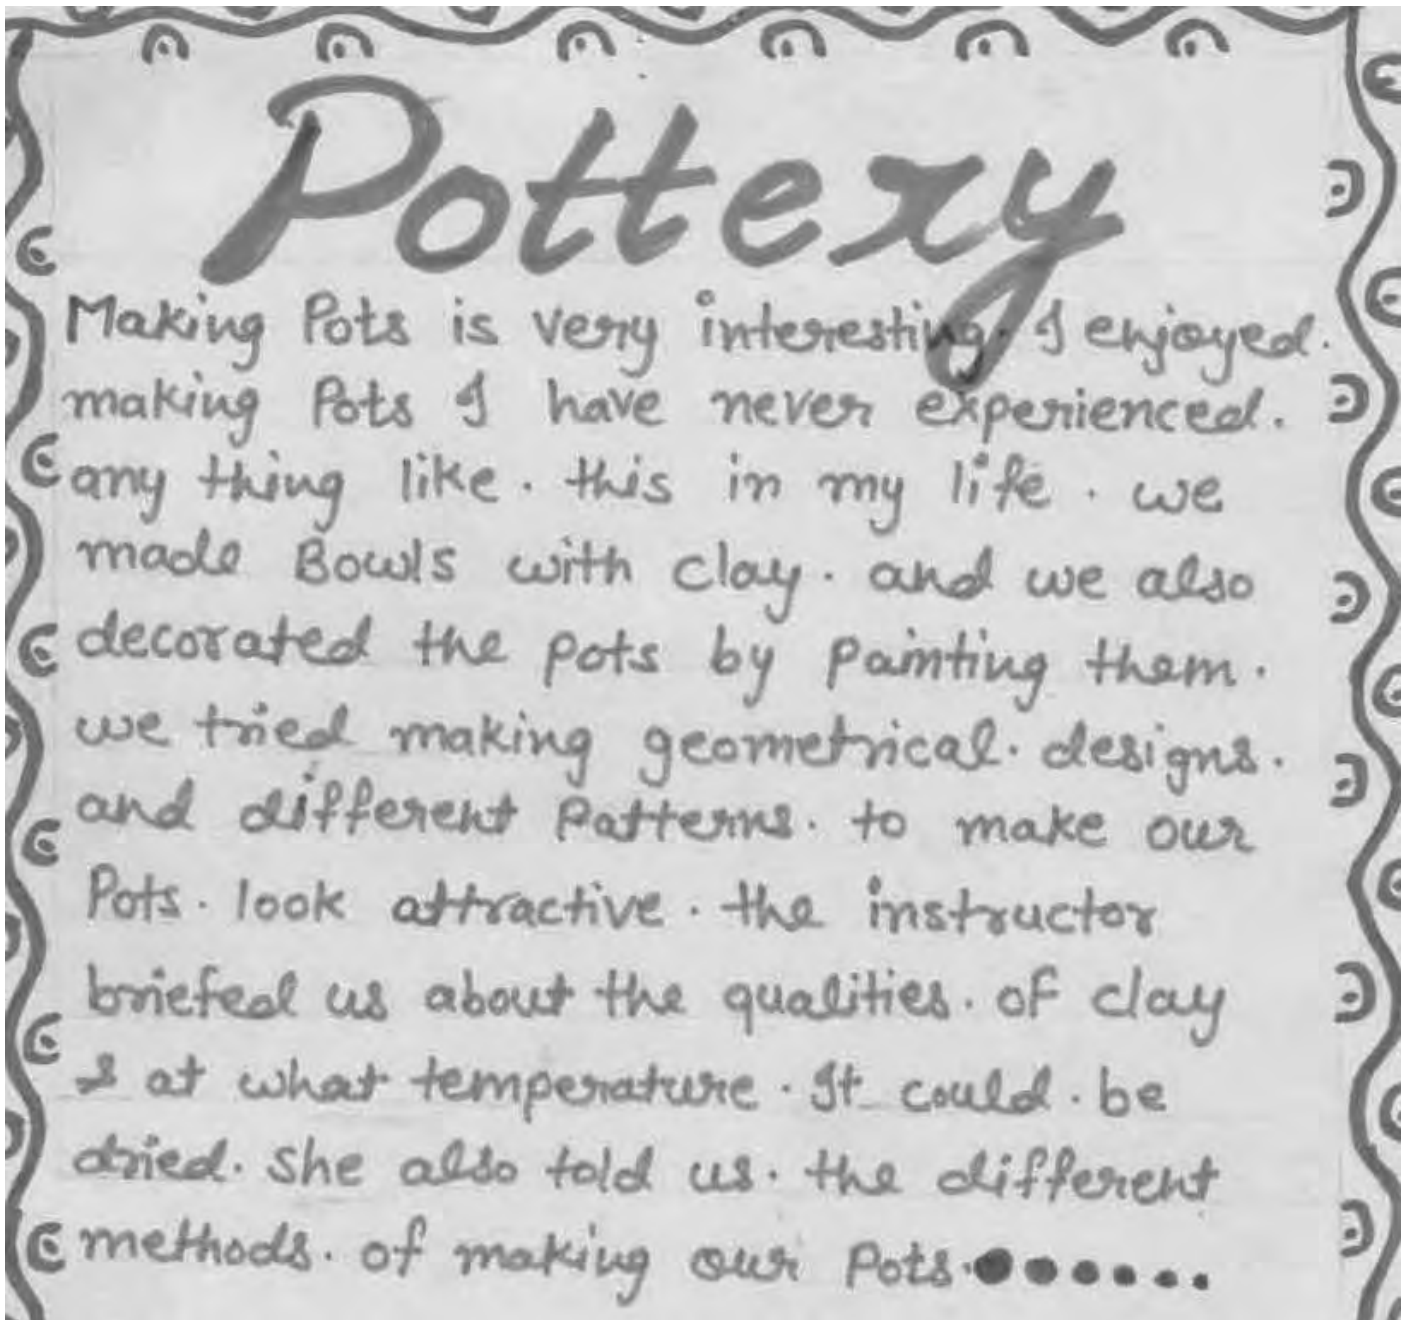 Pottery
Making Pots is very interesting. I enjoyed.
making Pots I have never experienced.
any thing like. this in my life. we
made Bowls with clay. and we also
decorated the pots by Painting them.
we tried making geometrical. designs.
and different Patterns. to make our
Pots. look attractive. the instructor
briefed us about the qualities. of clay
& at what temperature. It could. be
dried. She also told us. the different
methods. of making our Pots.......